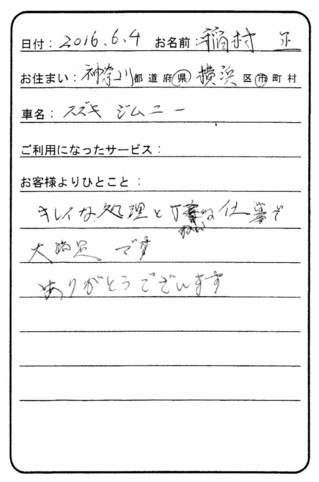 日付：2016.6.4 お名前：稲村 正
お住まい：神奈川都道府県 横浜区市町村
車名：スズキ ジムニー
ご利用になったサービス：
お客様よりひとこと：
キレイな処理と丁寧な仕事で
大満足です
ありがとうございます